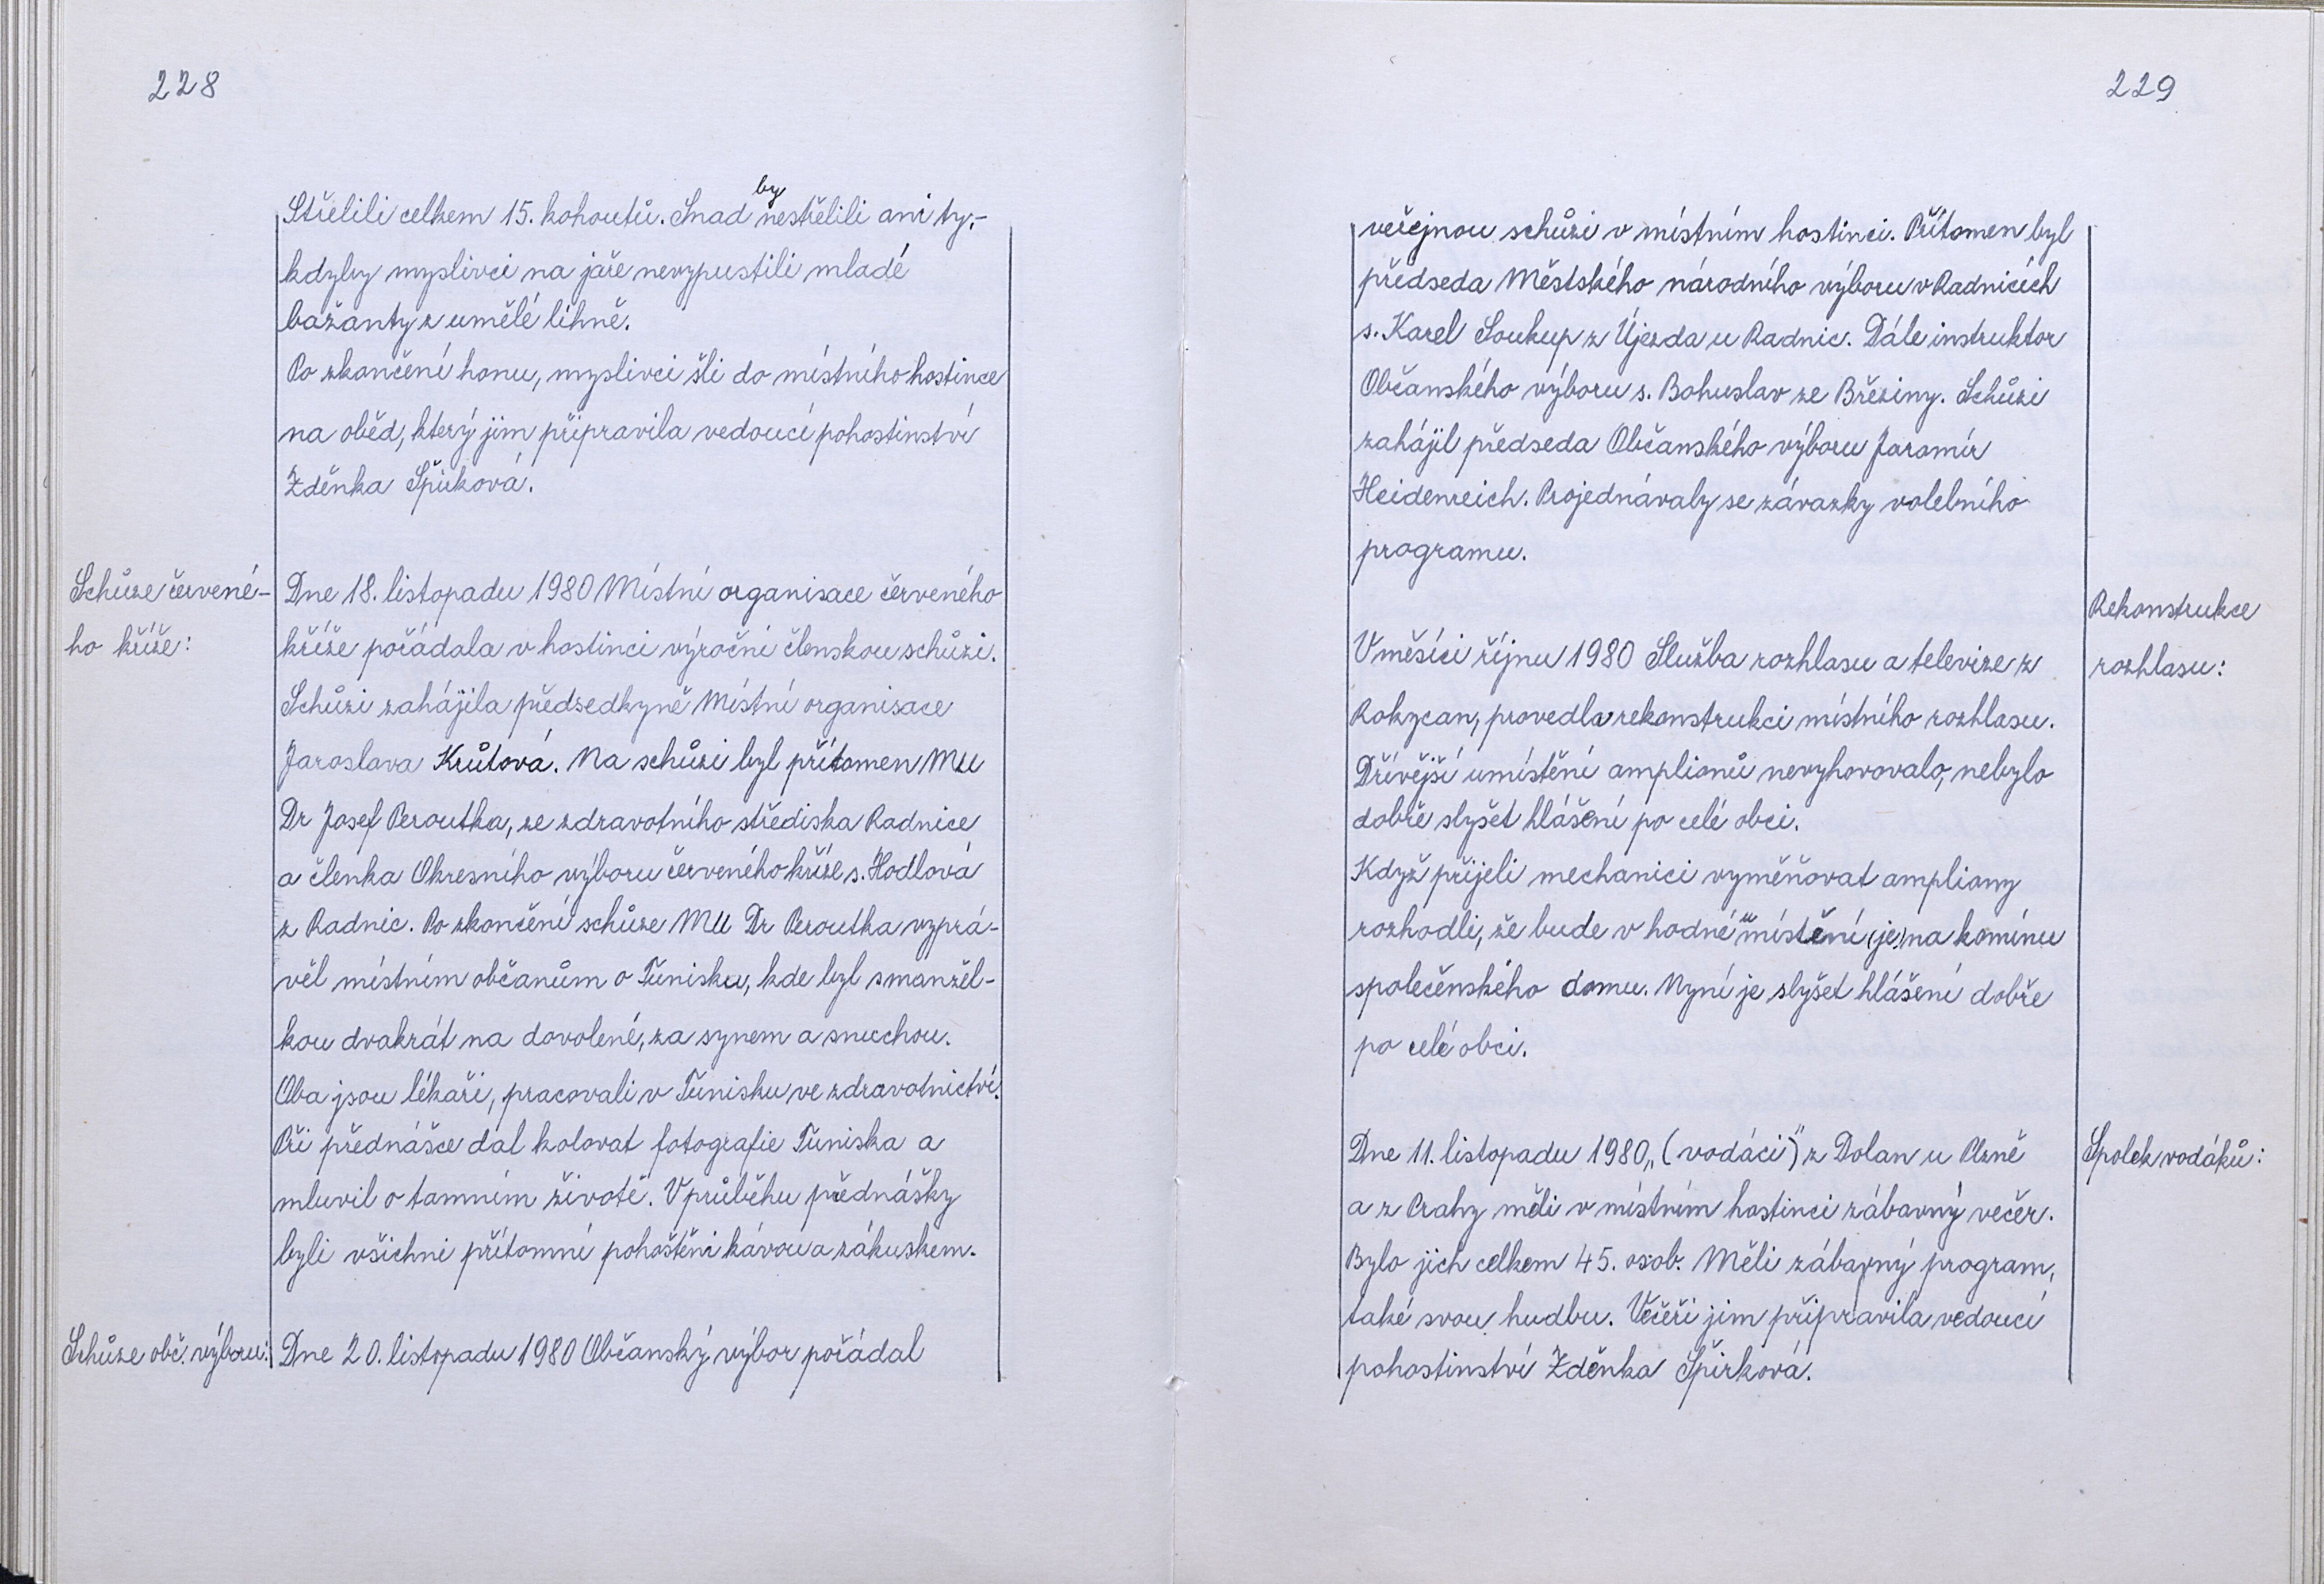 228
Střelili celkem 15. kohoutů. Snad by nestřelili ani ty,-
kdyby myslivci na jaře nevypustili mladé
bažanty z umělé líhně.
Po zkončení honu, myslivci šli do místního hostince
na oběd, který jim připravila vedoucí pohostinství
Zděnka Špirková.
Schůze červené-
ho kříže:
Dne 18. listopadu 1980 Místní organisace červeného
kříže pořádala v hostinci výroční členskou schůzi.
Schůzi zahájila předsedkyně Místní organisace
Jaroslava Krůtová. Na schůzi byl přítomen MU
Dr Josef Peroutka, ze zdravotního střediska Radnice
a členka Okresního výboru červeného kříže s. Hodlová
z Radnic. Po zkončení schůze MU Dr Peroutka vyprá-
věl místním občanům o Tunisku, kde byl s manžel-
kou dvakrát na dovolené, za synem a snuchou.
Oba jsou lékaři, pracovali v Tunisku ve zdravotnictví.
Při přednášce dal kolovat fotografie Tuniska a
mluvil o tamním životě. V průběhu přednášky
byli všichni přítomní pohoštěni kávou a zákuskem.
Schůze obč. výboru:
Dne 20. listopadu 1980 Občanský výbor pořádal
229
veřejnou schůzi v místním hostinci. Přítomen byl
předseda Městského národního výboru v Radnicích
s. Karel Soukup z Újezda u Radnic. Dále instruktor
Občanského výboru s. Bohuslav ze Březiny. Schůzi
zahájil předseda Občanského výboru Jaromír
Heidenreich. Projednávaly se závazky volebního
programu.
Rekonstrukce
rozhlasu:
V měsíci říjnu 1980 Služba rozhlasu a televize z
Rokycan, provedla rekonstrukci místního rozhlasu.
Dřívější umístění amplionů nevyhovovalo, nebylo
dobře slyšet hlášení po celé obci.
Když přijeli mechanici vyměňovat ampliony
rozhodli, že bude v hodné umístění (je) na komínu
společenského domu. Nyní je slyšet hlášení dobře
po celé obci.
Spolek vodáků:
Dne 11. listopadu 1980 „(vodáci)" z Dolan u Plzně
a z Prahy měli v místním hostinci zábavný večer.
Bylo jich celkem 45. osob. Měli zábavný program,
také svou hudbu. Večeři jim připravila vedoucí
pohostinství Zděnka Špirková.